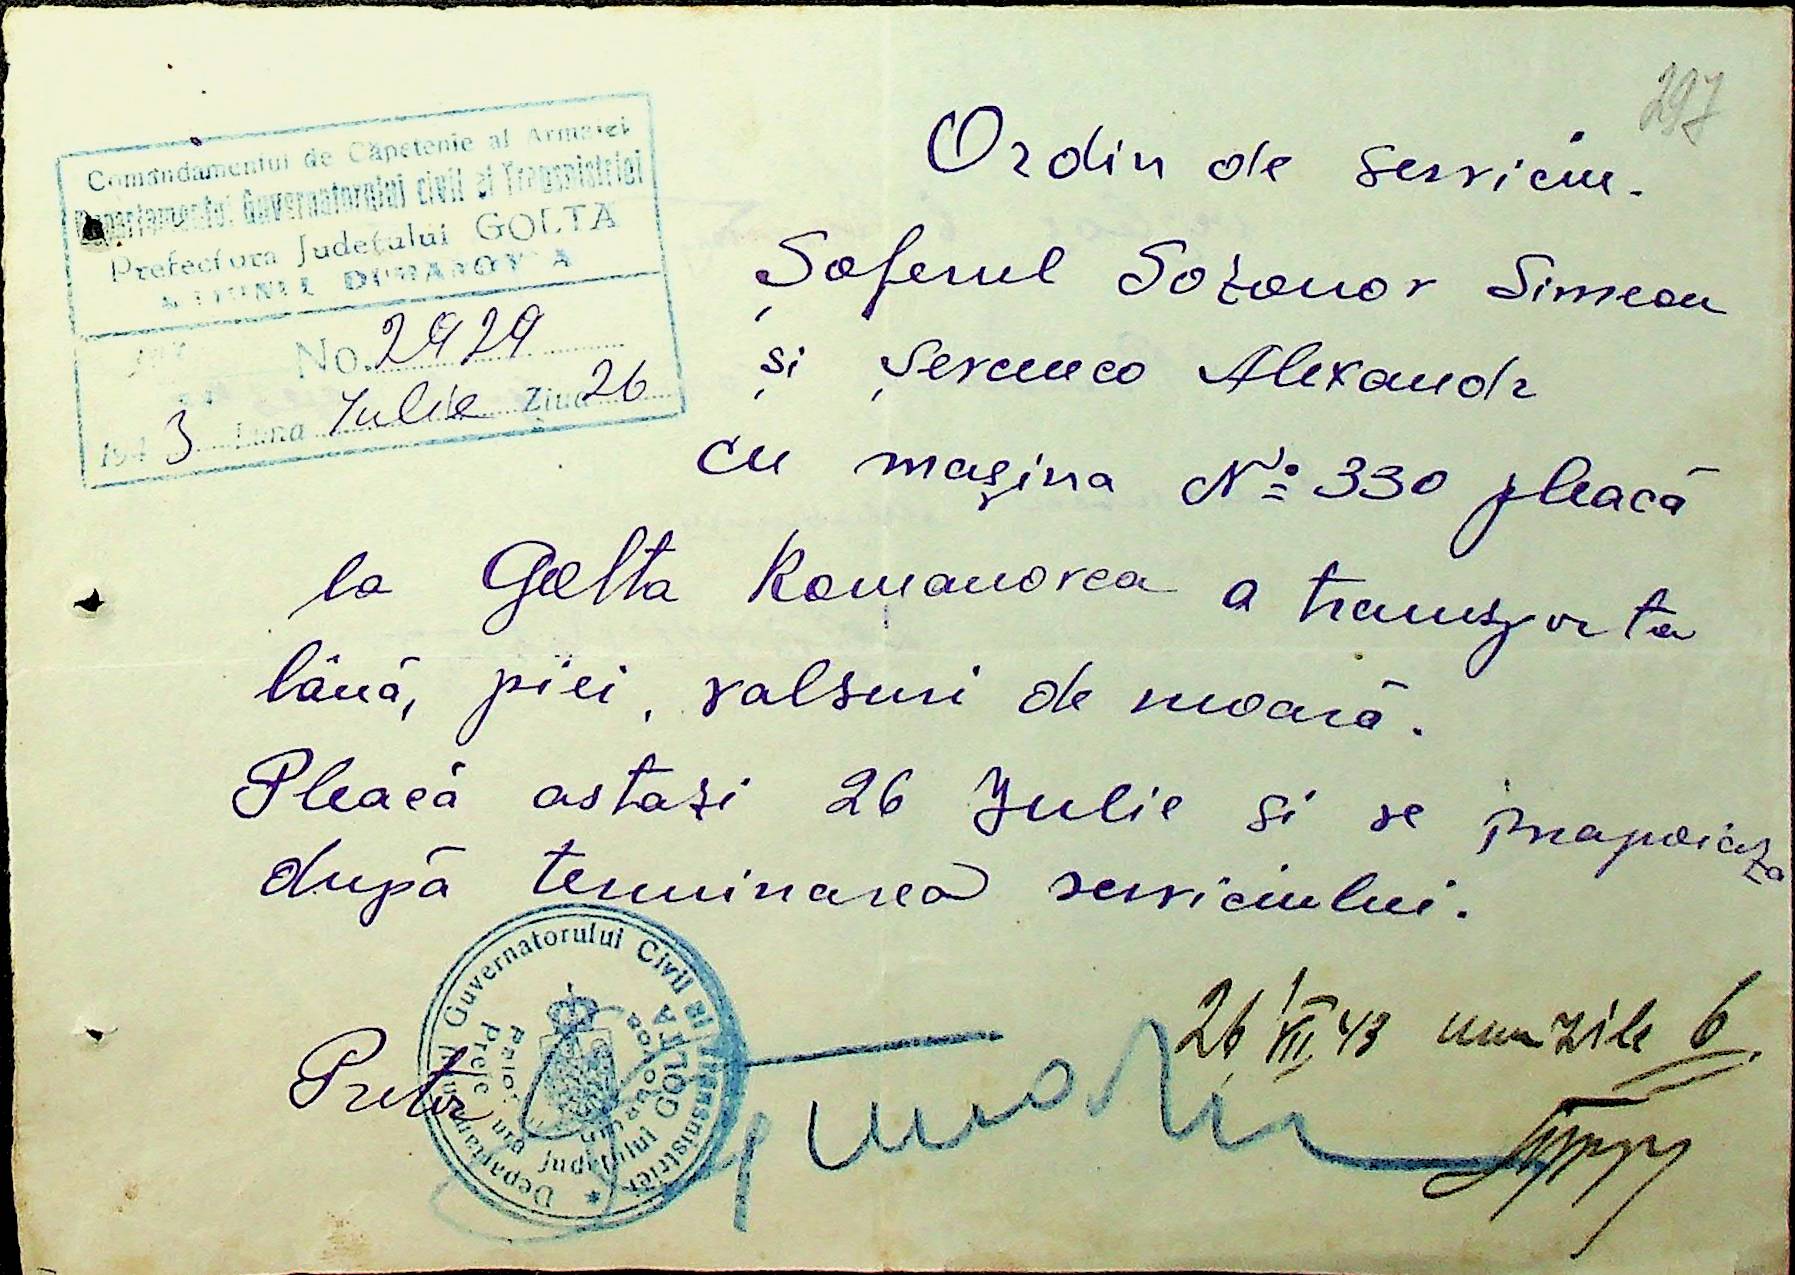 297
Comandamentul de Căpetenie al Armatei
Departamentul Guvernatorului civil al Transnistriei
Prefectura Județului GOLTA
No. 2929
1943 Luna Iulie Ziua 26
Ordin de serviciu.
Șoferul Sozonov Simeon
și Șevcenco Alexandr
cu mașina No 330 pleacă
la Golta Romanovca a transporta
lână, piei, valsuri de moară.
Pleacă astazi 26 Iulie și se înapoiaza
după terminarea serviciului.
26/VII 43 zile 6
Pretor
Departamentul Guvernatorului Civil al Transnistriei
din județul GOLTA